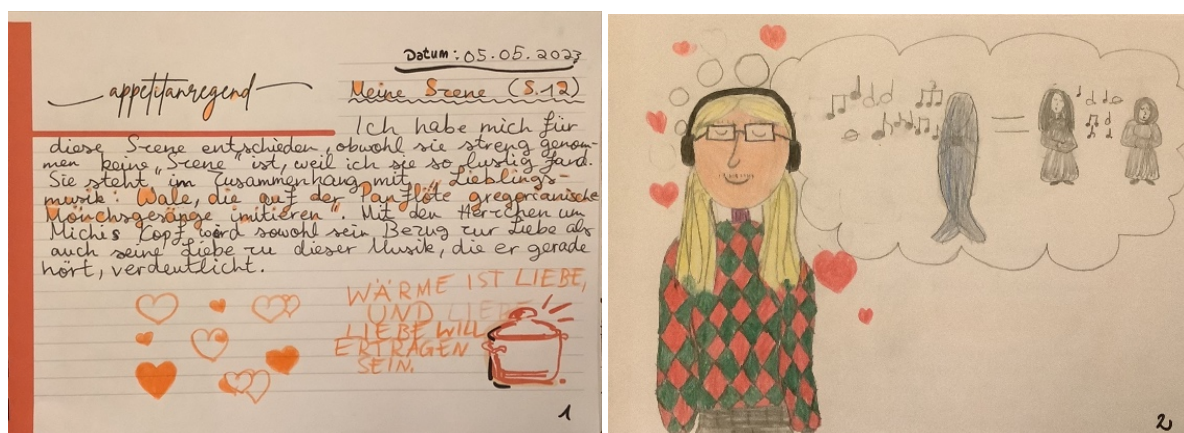 Datum: 05.05.2023
appetitanregend
Meine Szene (S.12)
Ich habe mich für
diese Szene entschieden, obwohl sie streng genom-
men "keine Szene" ist, weil ich sie so lustig fand.
Sie steht im Zusammenhang mit "Lieblings-
musik: Wale, die auf der Panflöte gregorianische
Mönchsgesänge imitieren". Mit den Herzchen um
Michis Kopf wird sowohl sein Bezug zur Liebe als
auch seine Liebe zu dieser Musik, die er gerade
hört, verdeutlicht.
WÄRME IST LIEBE,
UND LIEBE
LIEBE WILL
ERTRAGEN
SEIN.
1
2